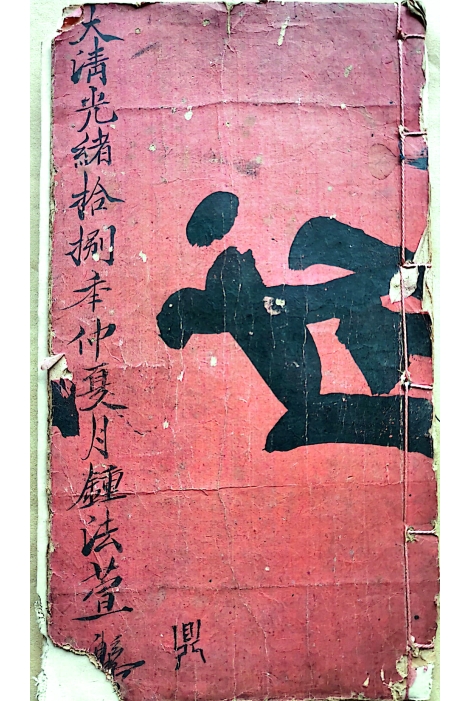 大清光緒拾捌年仲夏月鍾法萱
鼎